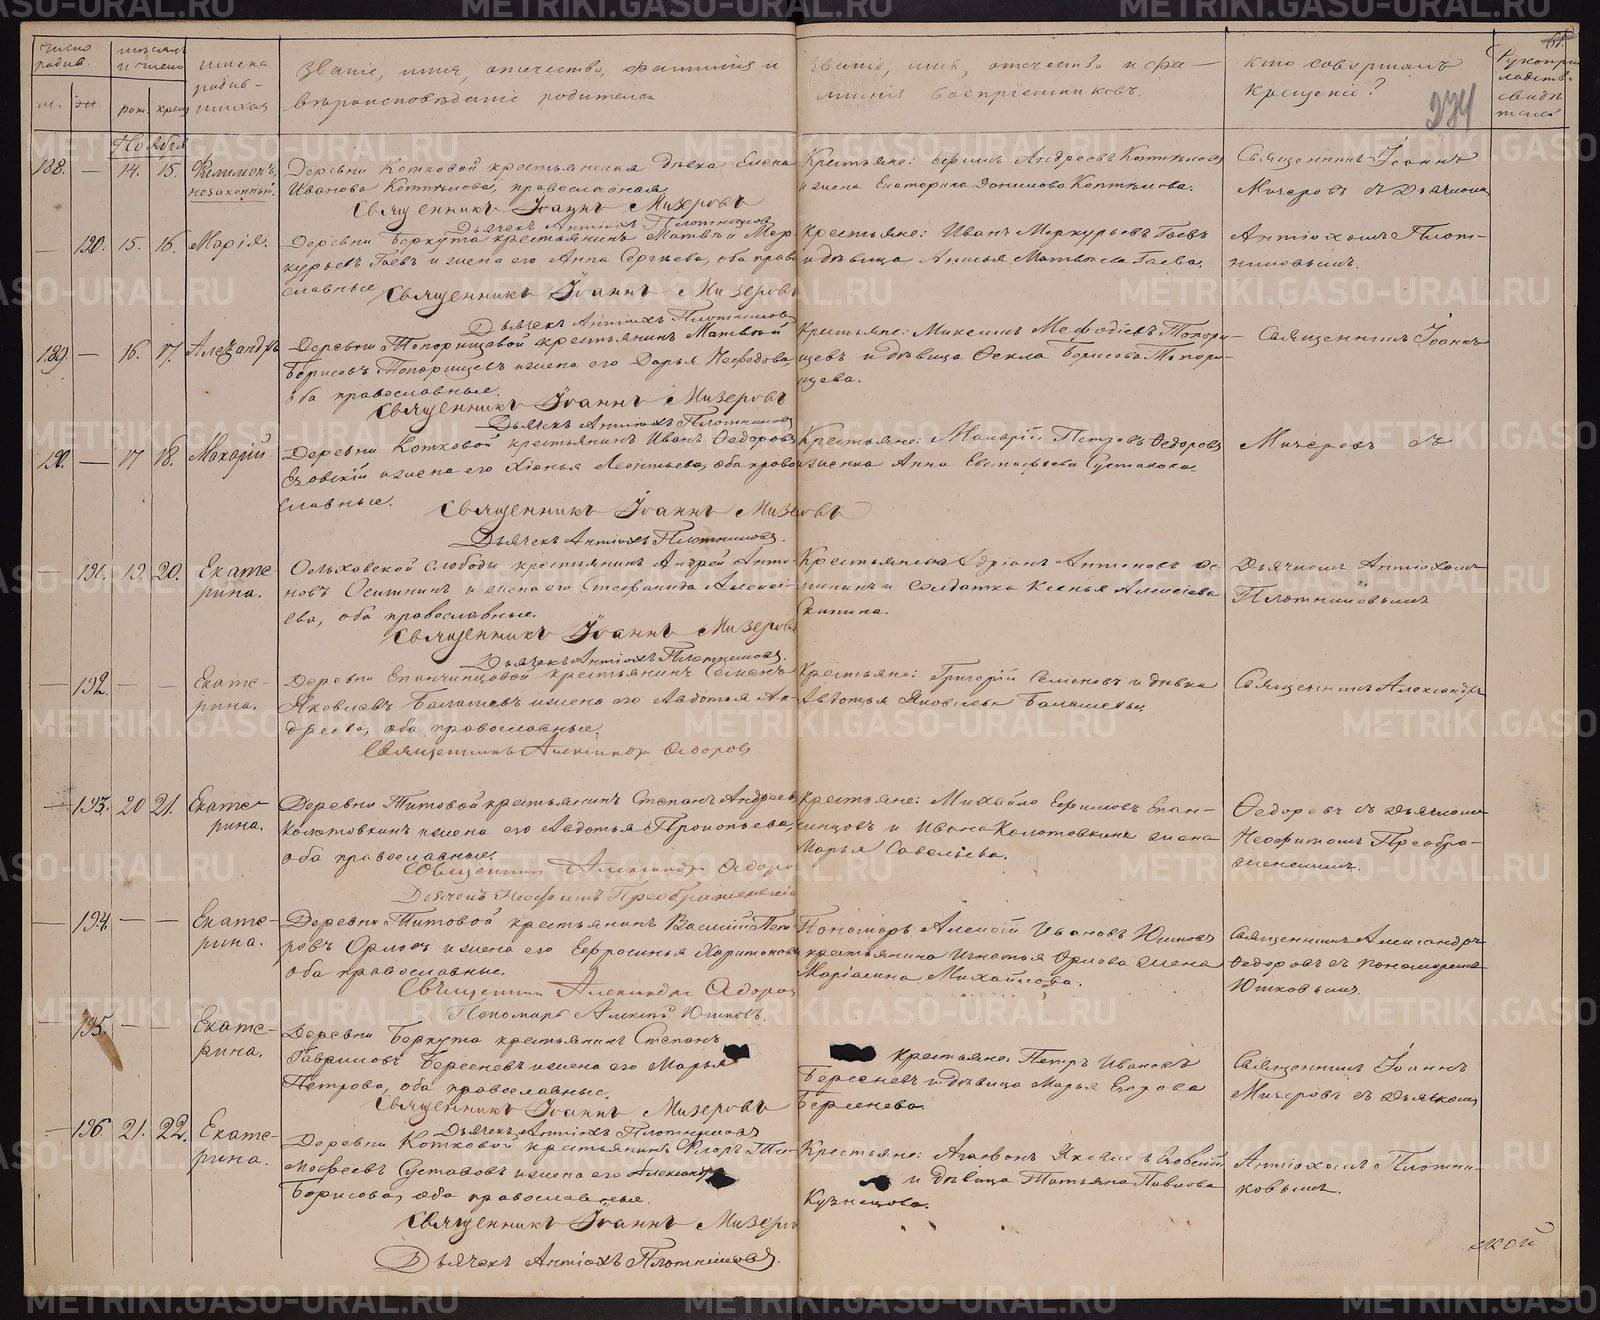 METRIKI.GASO-URAL.RU
61.
274
число родив.
мѣсяцъ и число
имена родив-шихся
Званіе, имя, отчество, фамилія и
вѣроисповѣданіе родителей
Званіе, имя, отчество и фа-
милія воспріемниковъ.
кто совершалъ
крещеніе?
Рукопри
кладств.
свидѣ
телей
м. ж. рож. крещ.
Ноября
188. — 14. 15. Филимонъ, незаконный.
Деревни Котковой крестьянская дѣвка Елена
Ивановна Коптѣлова, православная
Священникъ Іоаннъ Мизеровъ
Дьячекъ Антіохъ Плотниковъ
Крестьяне: Андреевъ Коптѣловъ
и жена Екатерина Данилова Коптѣлова.
Священникъ Іоаннъ
Мизеровъ съ дьячкомъ
— 190. 15. 16. Марія.
Деревни Беркута крестьянинъ Матвѣй Мер-
курьевъ Гаевъ и жена его Анна Сергѣева, оба право
славные
Священникъ Іоаннъ Мизеровъ
Дьячекъ Антіохъ Плотниковъ
Крестьяне: Иванъ Меркурьевъ Гаевъ
и дѣвица Матвѣева Гаева.
Антіохомъ Плот-
никовымъ.
189. — 16. 17. Александръ
Деревни Топорищевой крестьянинъ Матвѣй
Борисовъ Топорищевъ и жена его Дарья Нефедова,
оба православные.
Священникъ Іоаннъ Мизеровъ
Дьячекъ Антіохъ Плотниковъ
Крестьяне: Мефодіевъ Топори-
щевъ и дѣвица Ѳекла Борисова Топори-
щева.
Священникъ Іоаннъ
190. — 17 18. Макарій
Деревни Котковой крестьянинъ Иванъ Ѳедоровъ
Езовскій и жена его Хіонья Леонтьева, оба право
славные.
Священникъ Іоаннъ Мизеровъ
Дьячекъ Антіохъ Плотниковъ.
Крестьяне: Макарій Петровъ Ѳедоровъ
и женка Анна Евстафьева Суставова.
Мизеровъ съ
— 191. 19. 20. Екате
рина.
Ольховской слободы крестьянинъ Андрей Анто
новъ Осинникъ и жена его Степанида Алексѣ-
ева, оба православные.
Священникъ Іоаннъ Мизеровъ
Дьячекъ Антіохъ Плотниковъ.
Крестьянинъ Адріанъ Антоновъ Ос-
ининъ и солдатка Ксенья Алексіева
Дьячкомъ Антіохомъ
Плотниковымъ
— 192. — — Екате-
рина.
Деревни Епанчинцовой крестьянинъ Семенъ
Яковлевъ Балашевъ и жена его Авдотья Ан-
дреева, оба православные.
Священникъ Александръ Ѳедоровъ
Крестьяне: Григорій Семеновъ и дѣвка
Авдотья Яковлева Балашевы.
Священникъ Александръ
— 193. 20 21. Екате-
рина.
Деревни Титовой крестьянинъ Степанъ Андреевъ
Колотовкинъ и жена его Авдотья Прокопьева,
оба православные.
Священникъ Александръ Ѳедоро
Дьячекъ Неофитъ Преображенскій
Крестьяне: Михайло Ефимовъ Епан-
чинцовъ и Ивана Колотовкина жена
Марья Савельева.
Ѳедоровъ съ дьячкомъ
Неофитомъ Преобра-
женскимъ.
— 194. — — Екате-
рина.
Деревни Титовой крестьянинъ Василій Пет
ровъ Орловъ и жена его Ефросинья Харитонова
оба православные.
Священникъ Александръ Ѳедоров
Пономарь Алексѣй Юшковъ.
Пономарь Алексѣй Ивановъ Юшковъ
крестьянина Игнатья Орлова жена
Маріамна Михайлова.
Священникъ Александръ
Ѳедоровъ съ пономаремъ
Юшковымъ.
195. — — Екате-
рина.
Деревни Беркута крестьянинъ Степанъ
Гавриловъ Береневъ и жена его Марья
Петрова, оба православные.
Священникъ Іоаннъ Мизеровъ
Дьячекъ Антіохъ Плотниковъ
Крестьяне: Петръ Ивановъ
Береневъ и дѣвица Марья Егорова
Береенева.
Священникъ Іоаннъ
Мизеровъ съ дьячкомъ
— 196. 21. 22. Екате-
рина.
Деревни Котковой крестьянинъ Флоръ Ти-
моѳеевъ Суставовъ и жена его Александра
Борисова, оба православные.
Священникъ Іоаннъ Мизеро
Дьячекъ Антіохъ Плотниковъ.
Крестьяне: Агаѳонъ Яковлевъ Езовскій
и дѣвица Татьяна Павлова
Кузнецова.
Антіохомъ Плотни-
ковымъ.